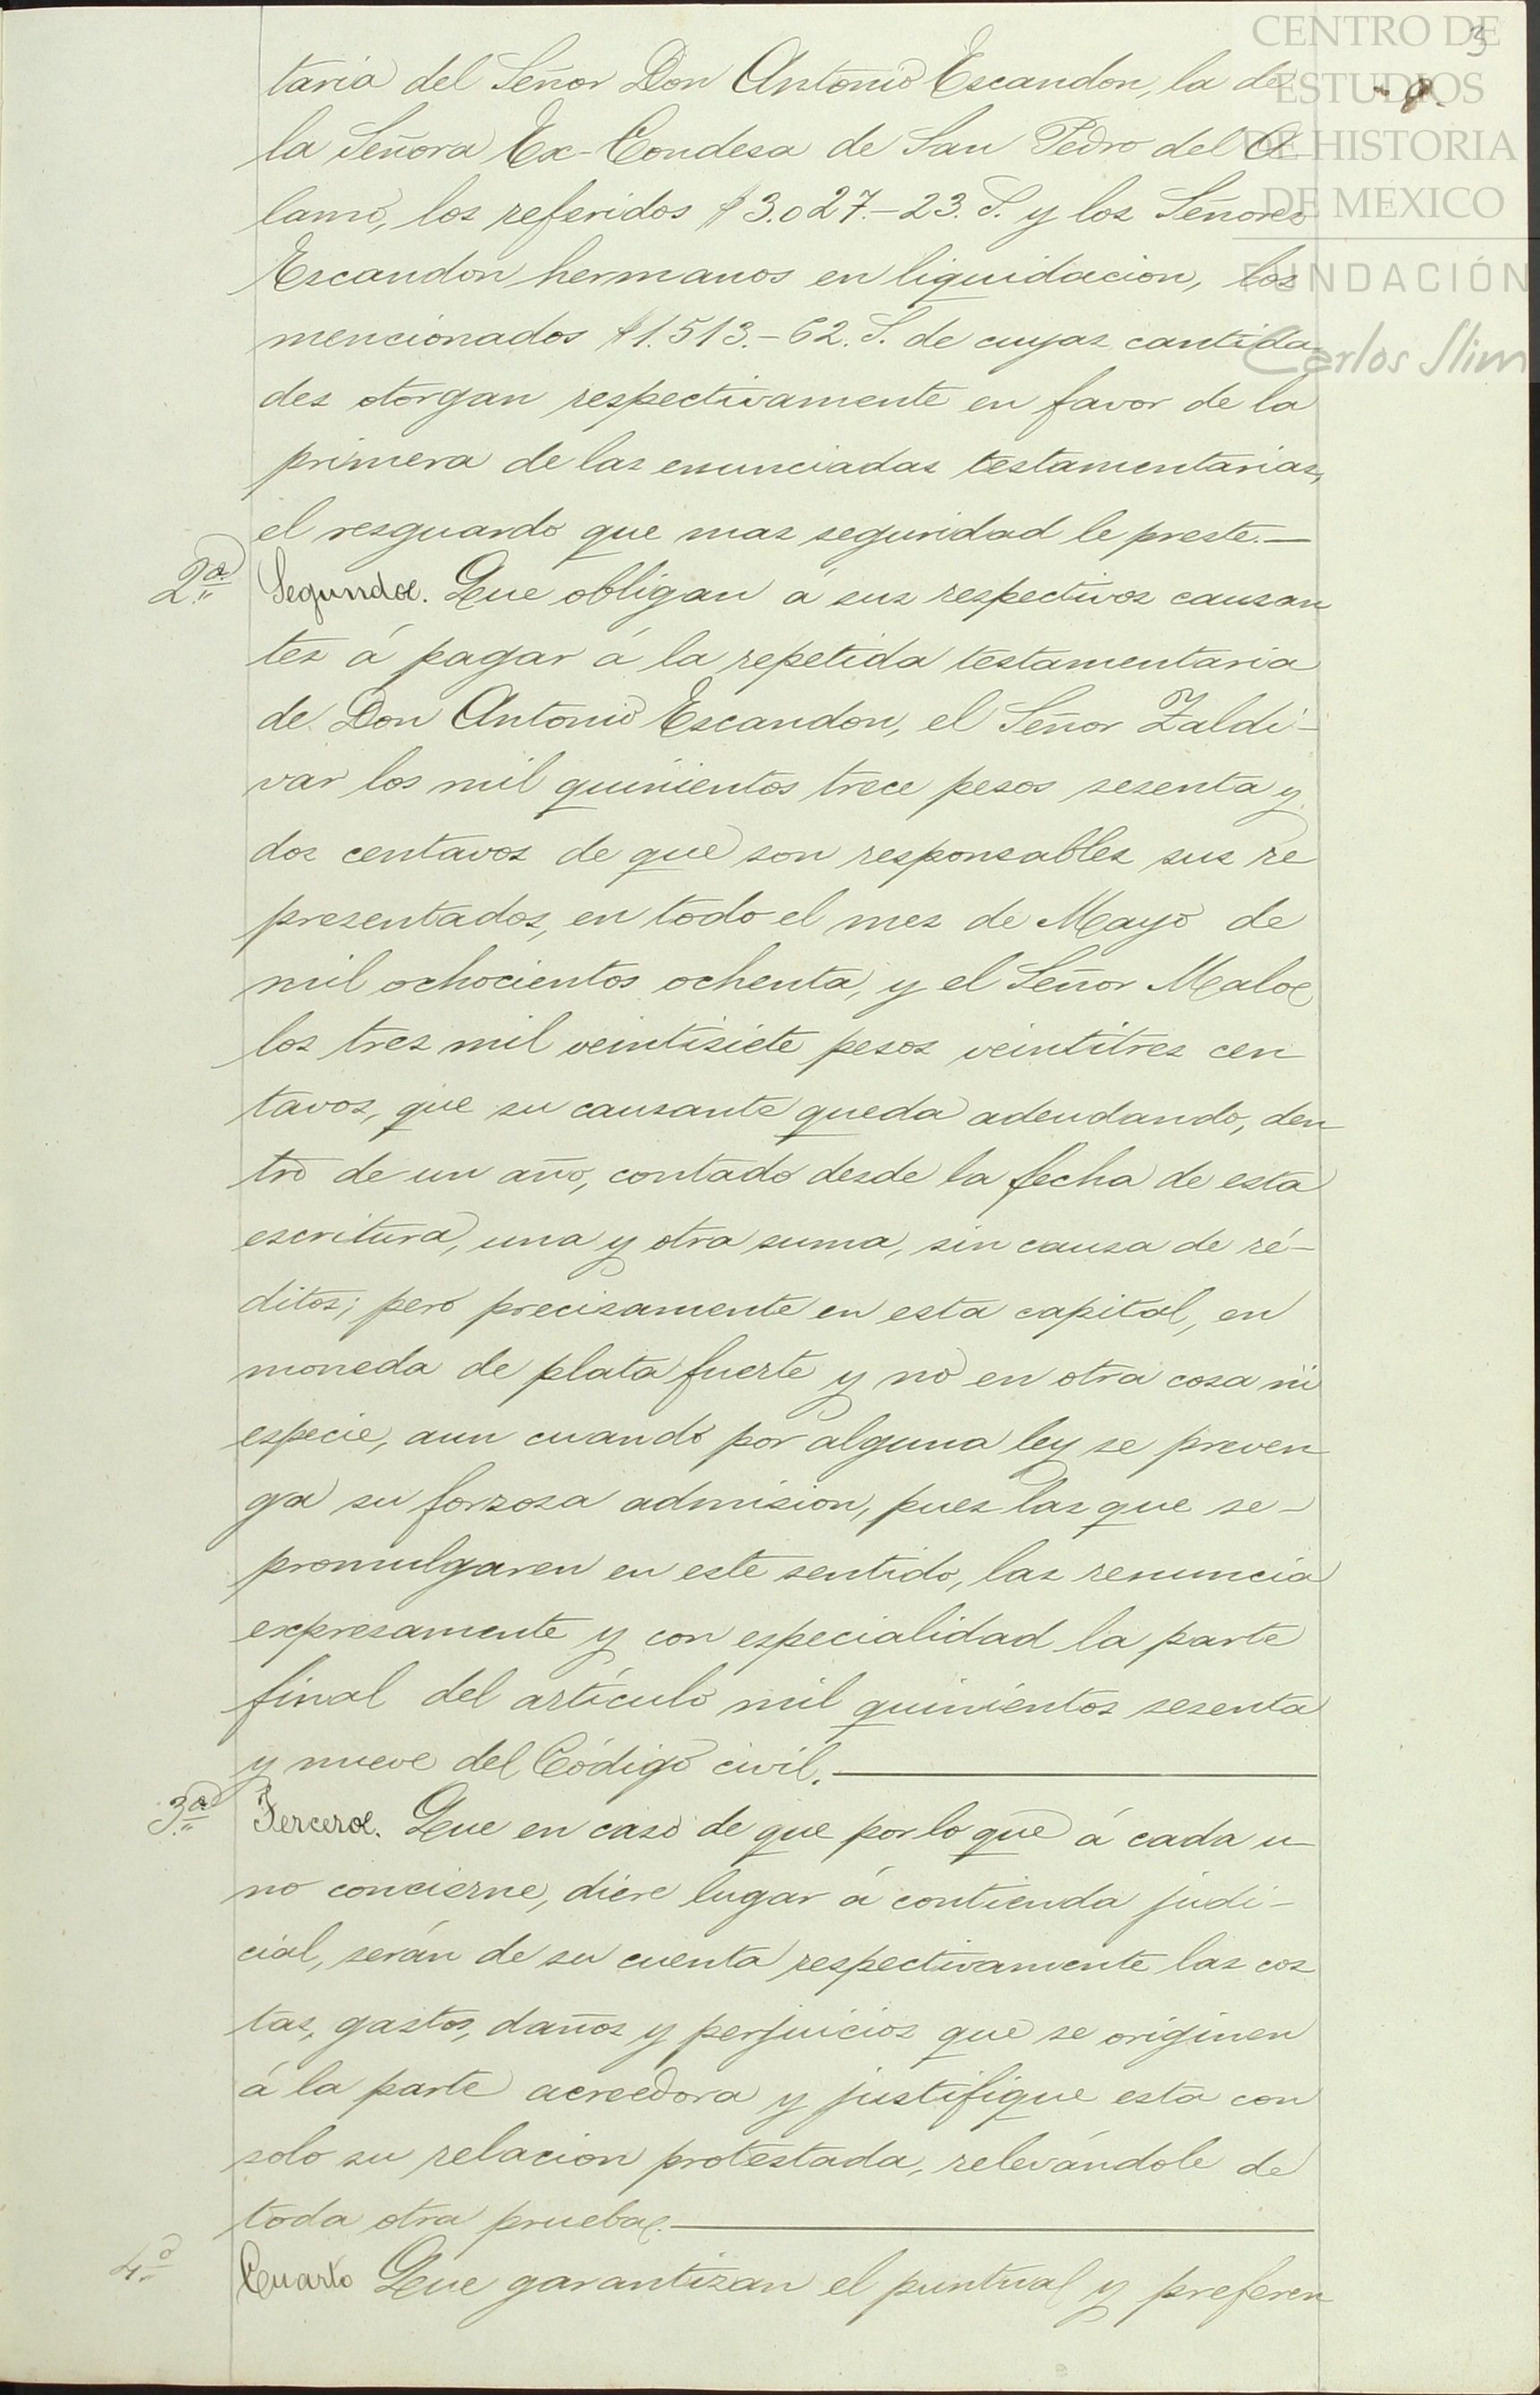 CENTRO DE
ESTUDIOS
DE HISTORIA
DE MÉXICO
FUNDACIÓN
Carlos Slim
3
taria del Señor Don Antonio Escandon, la de
la Señora Ex-Condesa de San Pedro del A-
lamo, los referidos $3.027.-23. S. y los Señores
Escandon hermanos en liquidacion, los
mencionados $1.513.-62. S. de cuyas cantida-
des otorgan respectivamente en favor de la
primera de las enunciadas testamentarias,
el resguardo que mas seguridad le preste.—
2ª Segunda. Que obligan á sus respectivos causan
tes á pagar á la repetida testamentaria
de Don Antonio Escandon, el Señor Zaldi-
var los mil quinientos trece pesos sesenta y
dos centavos de que son responsables sus re
presentados, en todo el mes de Mayo de
mil ochocientos ochenta, y el Señor Malo
los tres mil veintisiete pesos veintitres cen
tavos, que su causante queda adeudando, den
tro de un año, contado desde la fecha de esta
escritura, una y otra suma, sin causa de ré-
ditos; pero precisamente en esta capital, en
moneda de plata fuerte y no en otra cosa ni
especie, aun cuando por alguna ley se preven
ga su forzosa admision, pues las que se-
promulgaren en este sentido, las renuncia
expresamente y con especialidad la parte
final del artículo mil quinientos sesenta
y nueve del Código civil.—
3ª Tercera. Que en caso de que por lo que á cada u
no concierne, diere lugar á contienda judi-
cial, serán de su cuenta respectivamente las cos
tas, gastos, daños y perjuicios que se originen
á la parte acreedora y justifique esta con
solo su relacion protestada, relevándole de
toda otra prueba.—
4º Cuarto Que garantizan el puntual y preferen